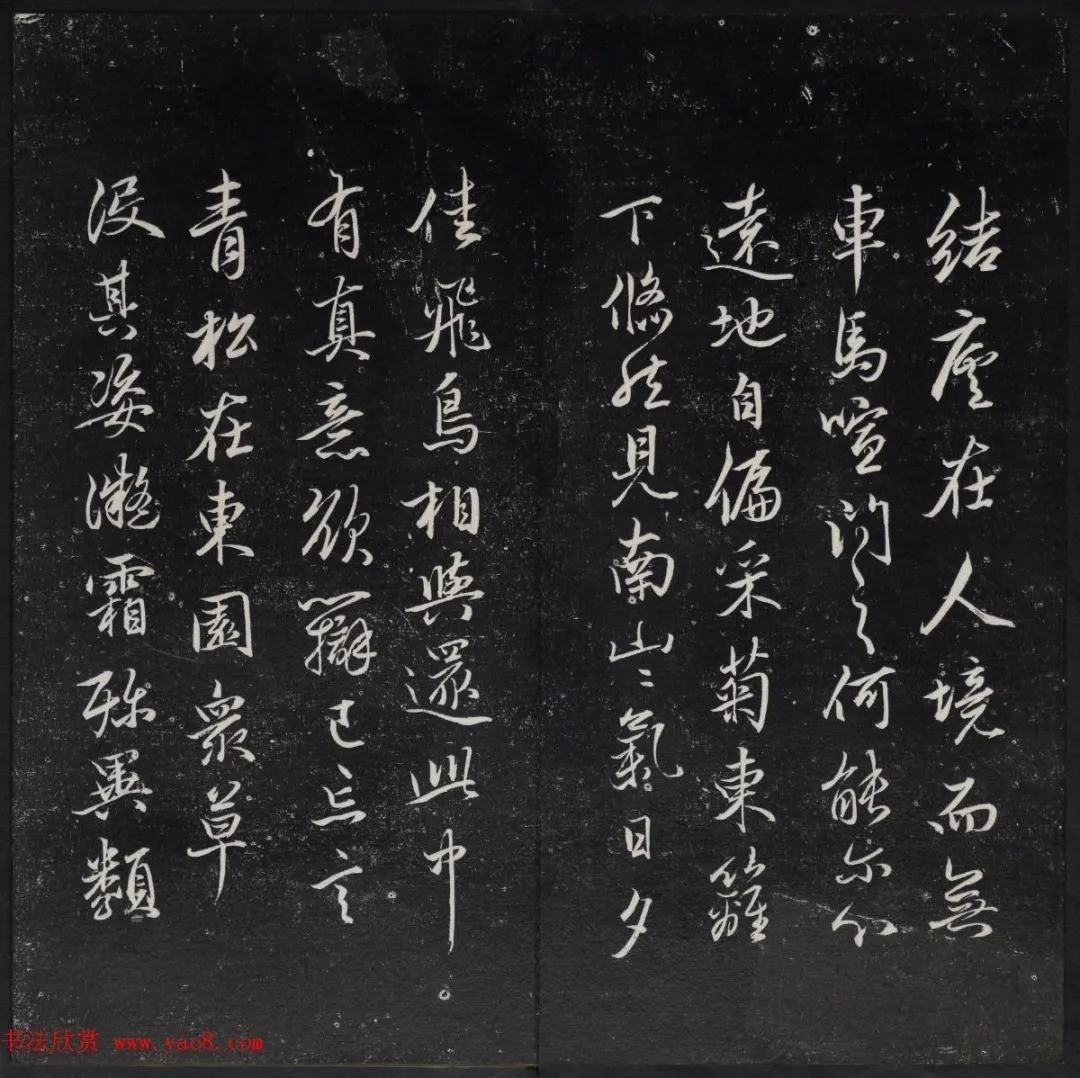 結廬在人境而無
車馬喧問君何能尔心
遠地自偏采菊東籬
下悠然見南山〻氣日夕
佳飛鳥相與還此中
有真意欲辯已忘言
青松在東園衆草
没其姿凝霜殄異類
书法欣赏 www.yac8.com